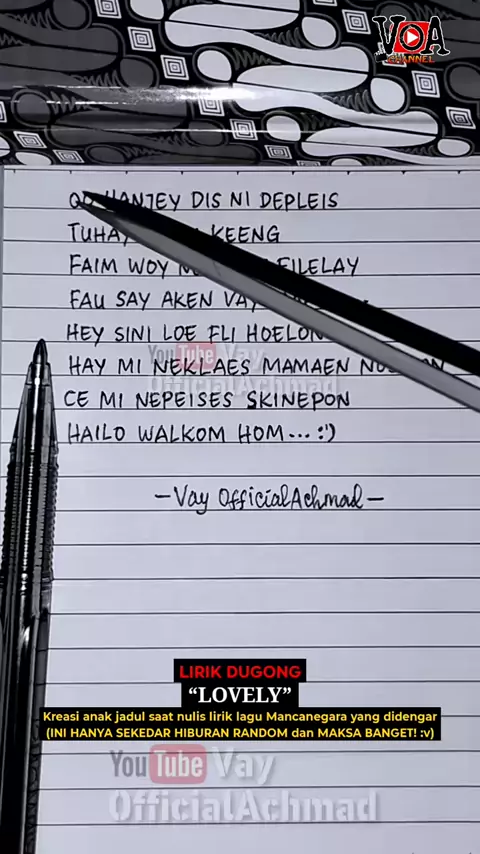 VOA
CHANNEL
HANJEY DIS NI DEPLEIS
TUHAY KEENG
FAIM WOY FILELAY
FAU SAY AKEN VAY
HEY SINI LOE FLI HOELON
HAY MI NEKLAES MAMAEN
CE MI NEPEISES SKINEPON
HAILO WALKOM HOM...:')
-Vay OfficialAchmad-
YouTube Vay
OfficialAchmad
LIRIK DUGONG
"LOVELY"
Kreasi anak jadul saat nulis lirik lagu Mancanegara yang didengar
(INI HANYA SEKEDAR HIBURAN RANDOM dan MAKSA BANGET! :v)
YouTube Vay
OfficialAchmad